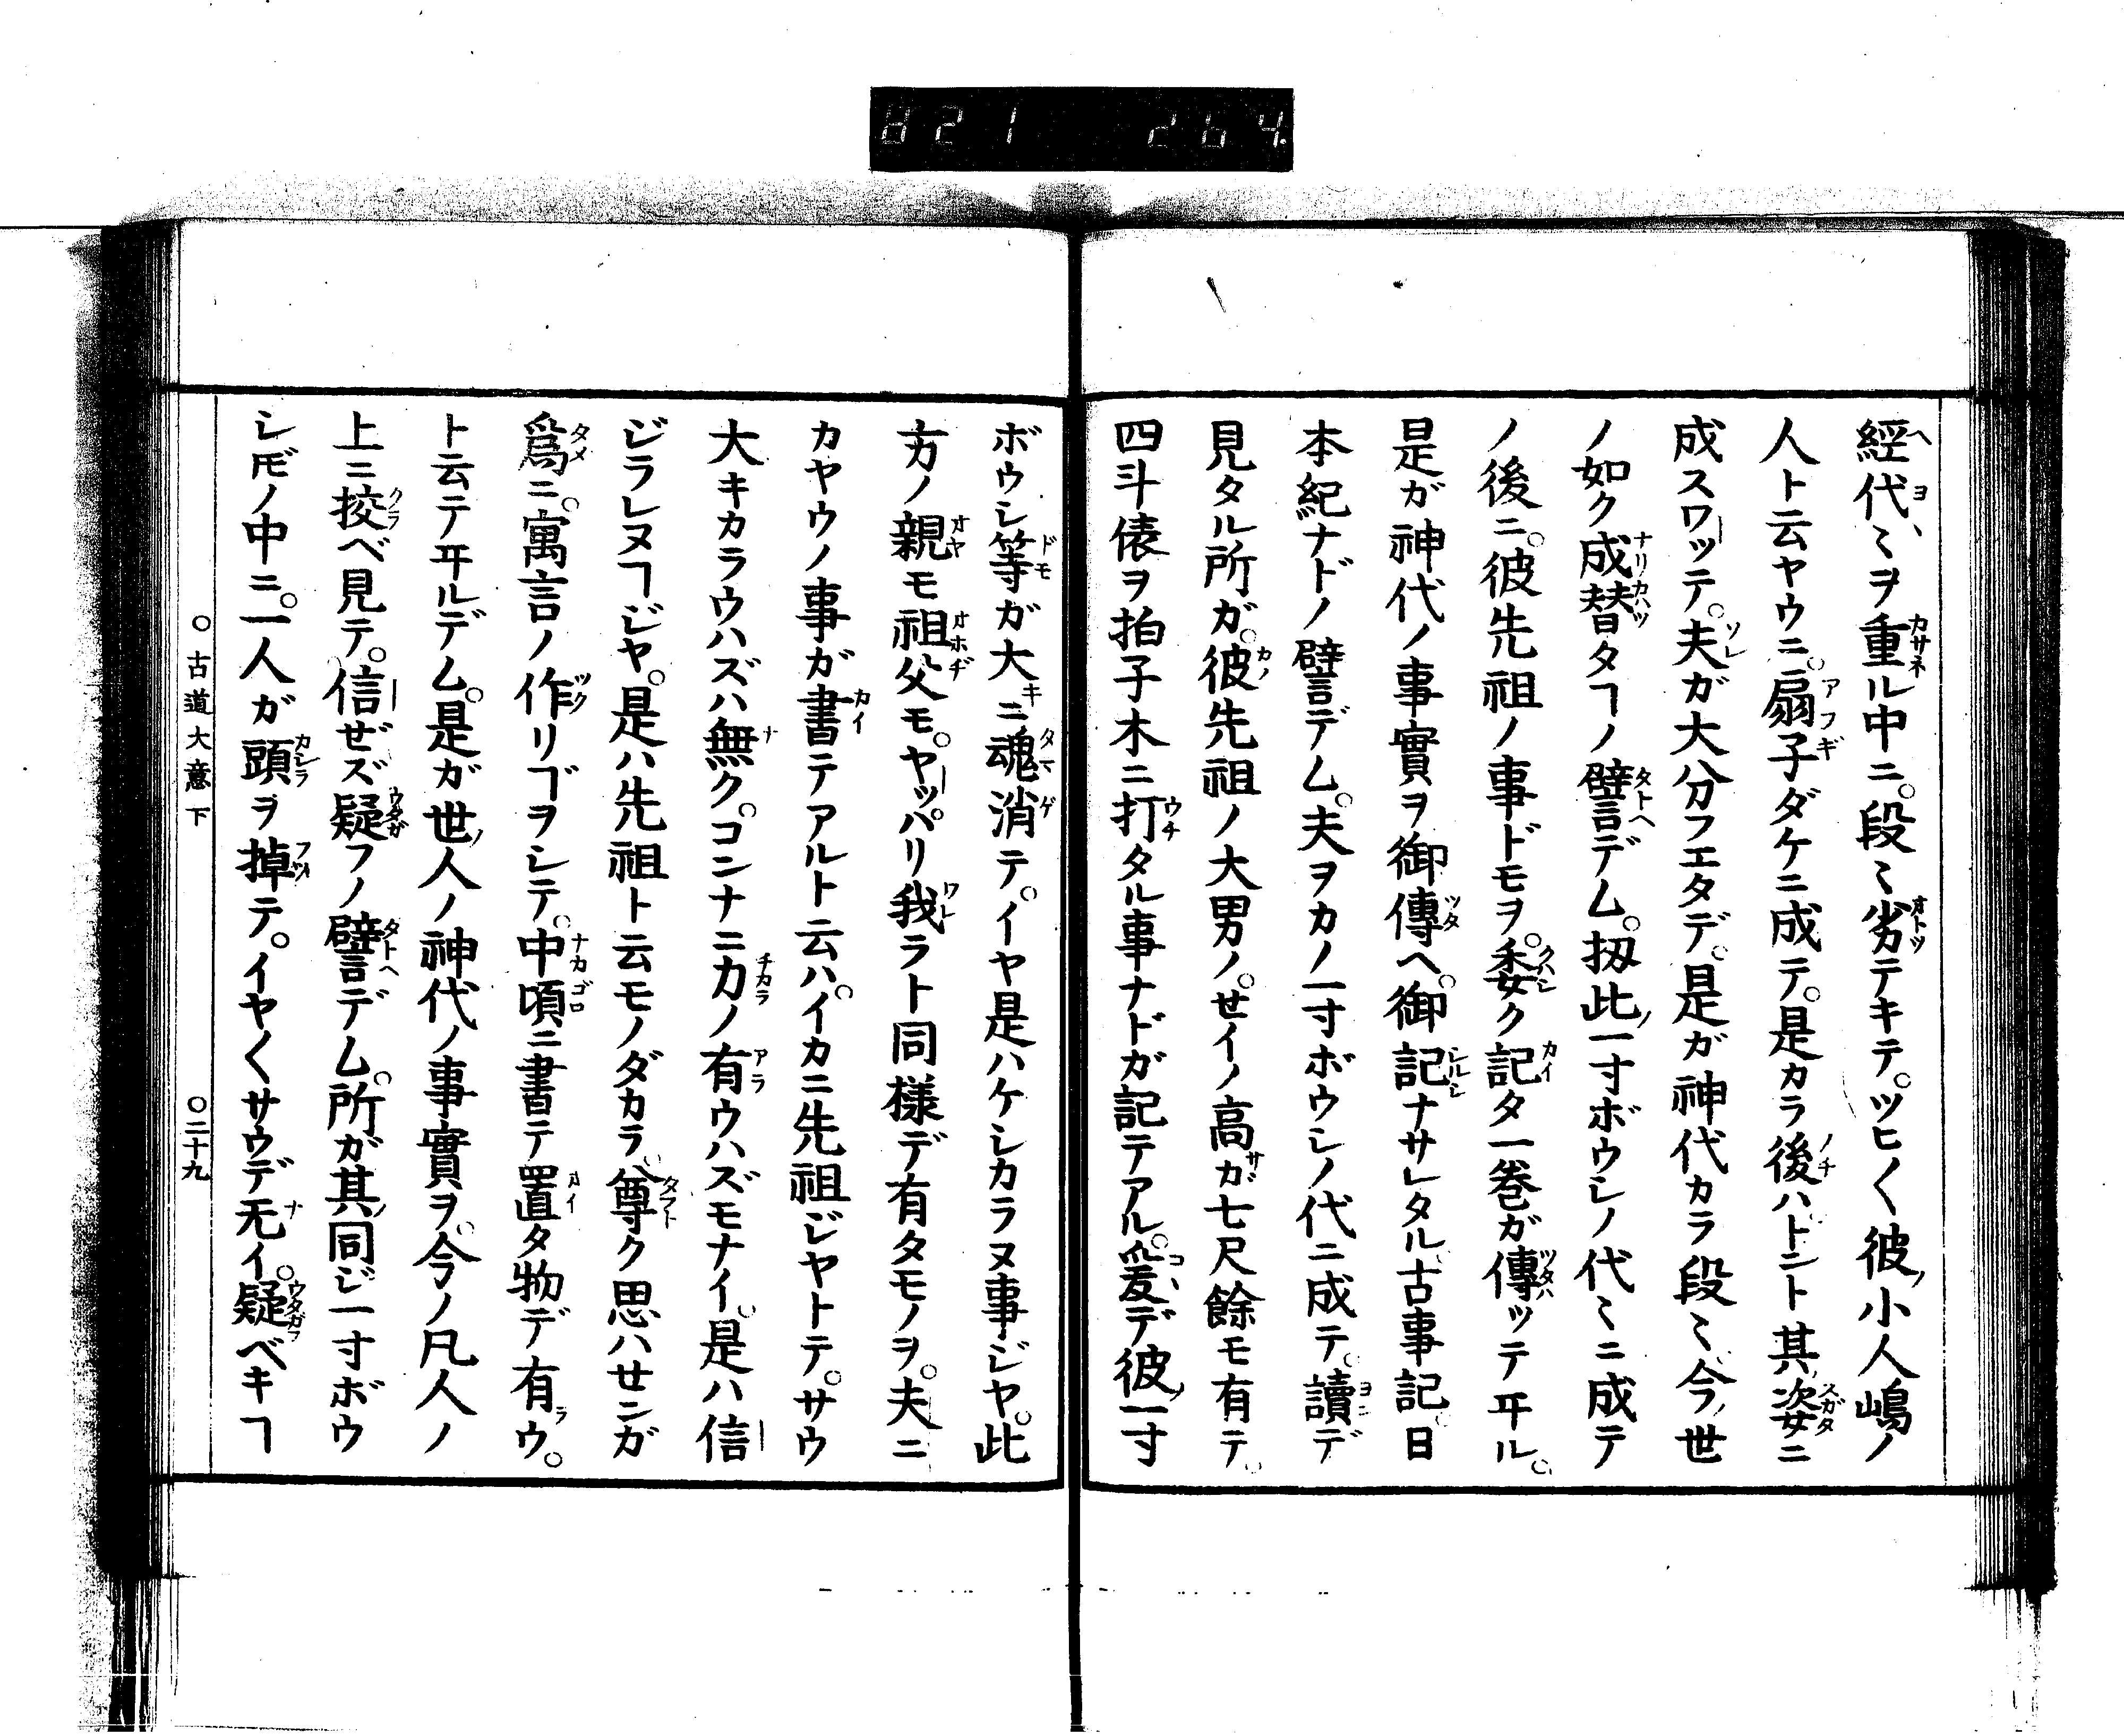 821 264
經代〻ヲ重ル中ニ。段〻劣テキテ。ツヒ〱彼ノ小人嶋ノ
人ト云ヤウニ。扇子ダケニ成テ。是カラ後ハトント其姿ニ
成スワッテ。夫ガ大分フエタデ。是ガ神代カラ段〻今ノ世
ノ如ク成替タヿノ譬言デム。扨此ノ一寸ボウシノ代〻ニ成テ
ノ後ニ。彼先祖ノ事ドモヲ。委ク記タ一巻ガ傳ッテヰル。
是ガ神代ノ事實ヲ御傳ヘ。御記ナサレタル。古事記日
本紀ナドノ譬言デム。夫ヲカノ一寸ボウシノ代ニ成テ。讀デ
見タル所ガ。彼先祖ノ大男ノ。せイノ高ガ七尺餘モ有テ。
四斗俵ヲ拍子木ニ打タル事ナドガ記テアル。爰デ彼ノ一寸
ボウシ等ガ大キニ魂消テ。イヤ是ハケシカラヌ事ジヤ。此
方ノ親モ祖父モ。ヤッパリ我ラト同様デ有タモノヲ。夫ニ
カヤウノ事ガ書テアルト云ハ。イカニ先祖ジヤトテ。サウ
大キカラウハズハ無ク。コンナニ力ノ有ウハズモナイ。是ハ信
ジラレヌヿジヤ。是ハ先祖ト云モノダカラ。尊ク思ハせンガ
爲ニ。寓言ノ作リヿヲシテ。中頃ニ書テ置タ物デ有ウ。
ト云テヰルデム。是ガ世ノ人ノ神代ノ事實ヲ。今ノ凡人ノ
上ニ挍ベ見テ。信ぜズ疑フノ譬言デム。所ガ其ノ同ジ一寸ボウ
シ𪜈ノ中ニ。一人ガ頭ヲ掉テ。イヤ〱サウデ无イ。疑ベキヿ
○古道大意下 ○二十九